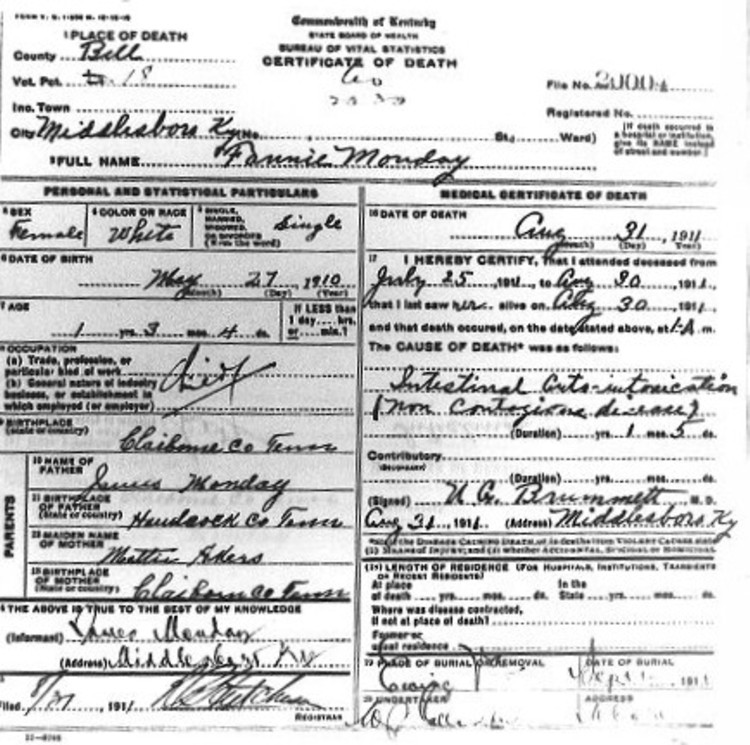 Commonwealth of Kentucky
STATE BOARD OF HEALTH
BUREAU OF VITAL STATISTICS
CERTIFICATE OF DEATH
1 PLACE OF DEATH
County Bell
Vot. Pct. 18
Inc. Town
City Middlesboro Ky (No. St., Ward)
File No. 20004
Registered No.
[If death occurred in a hospital or institution, give its NAME instead of street and number.]
2 FULL NAME Fannie Monday
PERSONAL AND STATISTICAL PARTICULARS
3 SEX Female
4 COLOR OR RACE White
5 SINGLE, MARRIED, WIDOWED, OR DIVORCED (Write the word) Single
6 DATE OF BIRTH
May 27, 1910
(Month) (Day) (Year)
7 AGE
1 yrs. 3 mos. 4 ds.
If LESS than 1 day.... hrs. or.... min.?
8 OCCUPATION
(a) Trade, profession, or particular kind of work
(b) General nature of industry business, or establishment in which employed (or employer)
9 BIRTHPLACE
(State or country) Claiborne Co Tenn
PARENTS
10 NAME OF FATHER James Monday
11 BIRTHPLACE OF FATHER
(State or country) Handcock Co Tenn
12 MAIDEN NAME OF MOTHER Mattie Akers
13 BIRTHPLACE OF MOTHER
(State or country) Claiborn Co Tenn
THE ABOVE IS TRUE TO THE BEST OF MY KNOWLEDGE
(Informant) James Monday
(Address) Middlesboro Ky
Filed 1911
REGISTRAR
MEDICAL CERTIFICATE OF DEATH
16 DATE OF DEATH
Aug 31, 1911
(Month) (Day) (Year)
17 I HEREBY CERTIFY, That I attended deceased from
July 25, 1911, to Aug 30, 1911,
that I last saw her alive on Aug 30, 1911,
and that death occured, on the date stated above, at 1 A m.
The CAUSE OF DEATH* was as follows:
Intestinal Auto-intoxication
(Non Contagious disease)
(Duration) yrs. 1 mos. 5 ds.
Contributory
(SECONDARY)
(Duration) yrs. mos. ds.
(Signed) U. G. Brummett M. D.
Aug 31, 1911. (Address) Middlesboro Ky
(18) LENGTH OF RESIDENCE (FOR HOSPITALS, INSTITUTIONS, TRANSIENTS OR RECENT RESIDENTS)
At place of death yrs. mos. ds. In the State yrs. mos. ds.
Where was disease contracted, If not at place of death?
Former or usual residence
19 PLACE OF BURIAL OR REMOVAL
DATE OF BURIAL
Sept 1911
20 UNDERTAKER
ADDRESS